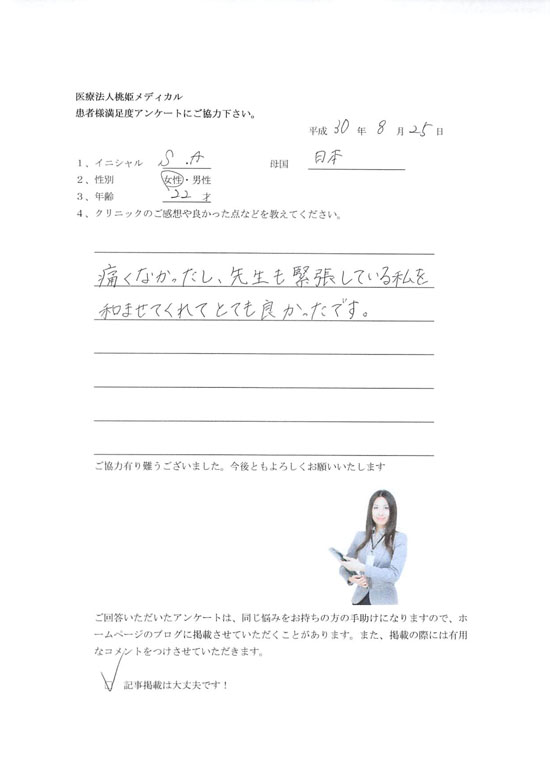 医療法人桃姫メディカル
患者様満足度アンケートにご協力下さい。
平成 30 年 8 月 25 日
1、イニシャル S.A 母国 日本
2、性別 女性・男性
3、年齢 22 才
4、クリニックのご感想や良かった点などを教えてください。
痛くなかったし、先生も緊張している私を
和ませてくれてとても良かったです。
ご協力有り難うございました。今後ともよろしくお願いいたします
ご回答いただいたアンケートは、同じ悩みをお持ちの方の手助けになりますので、ホ
ームページのブログに掲載させていただくことがあります。また、掲載の際には有用
なコメントをつけさせていただきます。
☑ 記事掲載は大丈夫です！